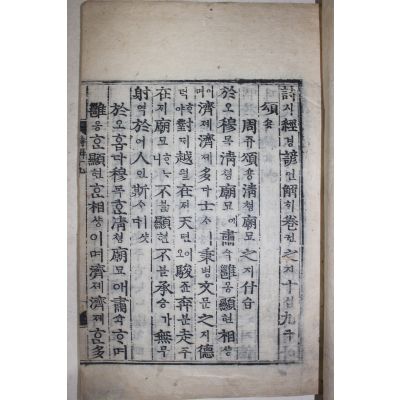 詩시經경諺언解ᄒᆡ卷권之지十십九구
頌숑
周쥬頌숑淸쳥廟묘之지什십
於오穆목淸쳥廟묘애肅슉雝옹顯현相샹
이며濟졔濟졔多다士ᄉㅣ秉병文문之지德
덕ᄒᆞ야對ᄃᆡ越월在ᄌᆡ天텬이오駿쥰奔분走주
在ᄌᆡ廟묘ᄒᆞᄂᆞ니不블顯현不블承승가無무
射역於어人인斯ᄉᆞ샷다
於오홉다穆목ᄒᆞᆫ淸쳥廟묘애肅슉ᄒᆞ며
雝옹ᄒᆞᆫ顯현ᄒᆞᆫ相샹이며濟졔濟졔ᄒᆞᆫ多